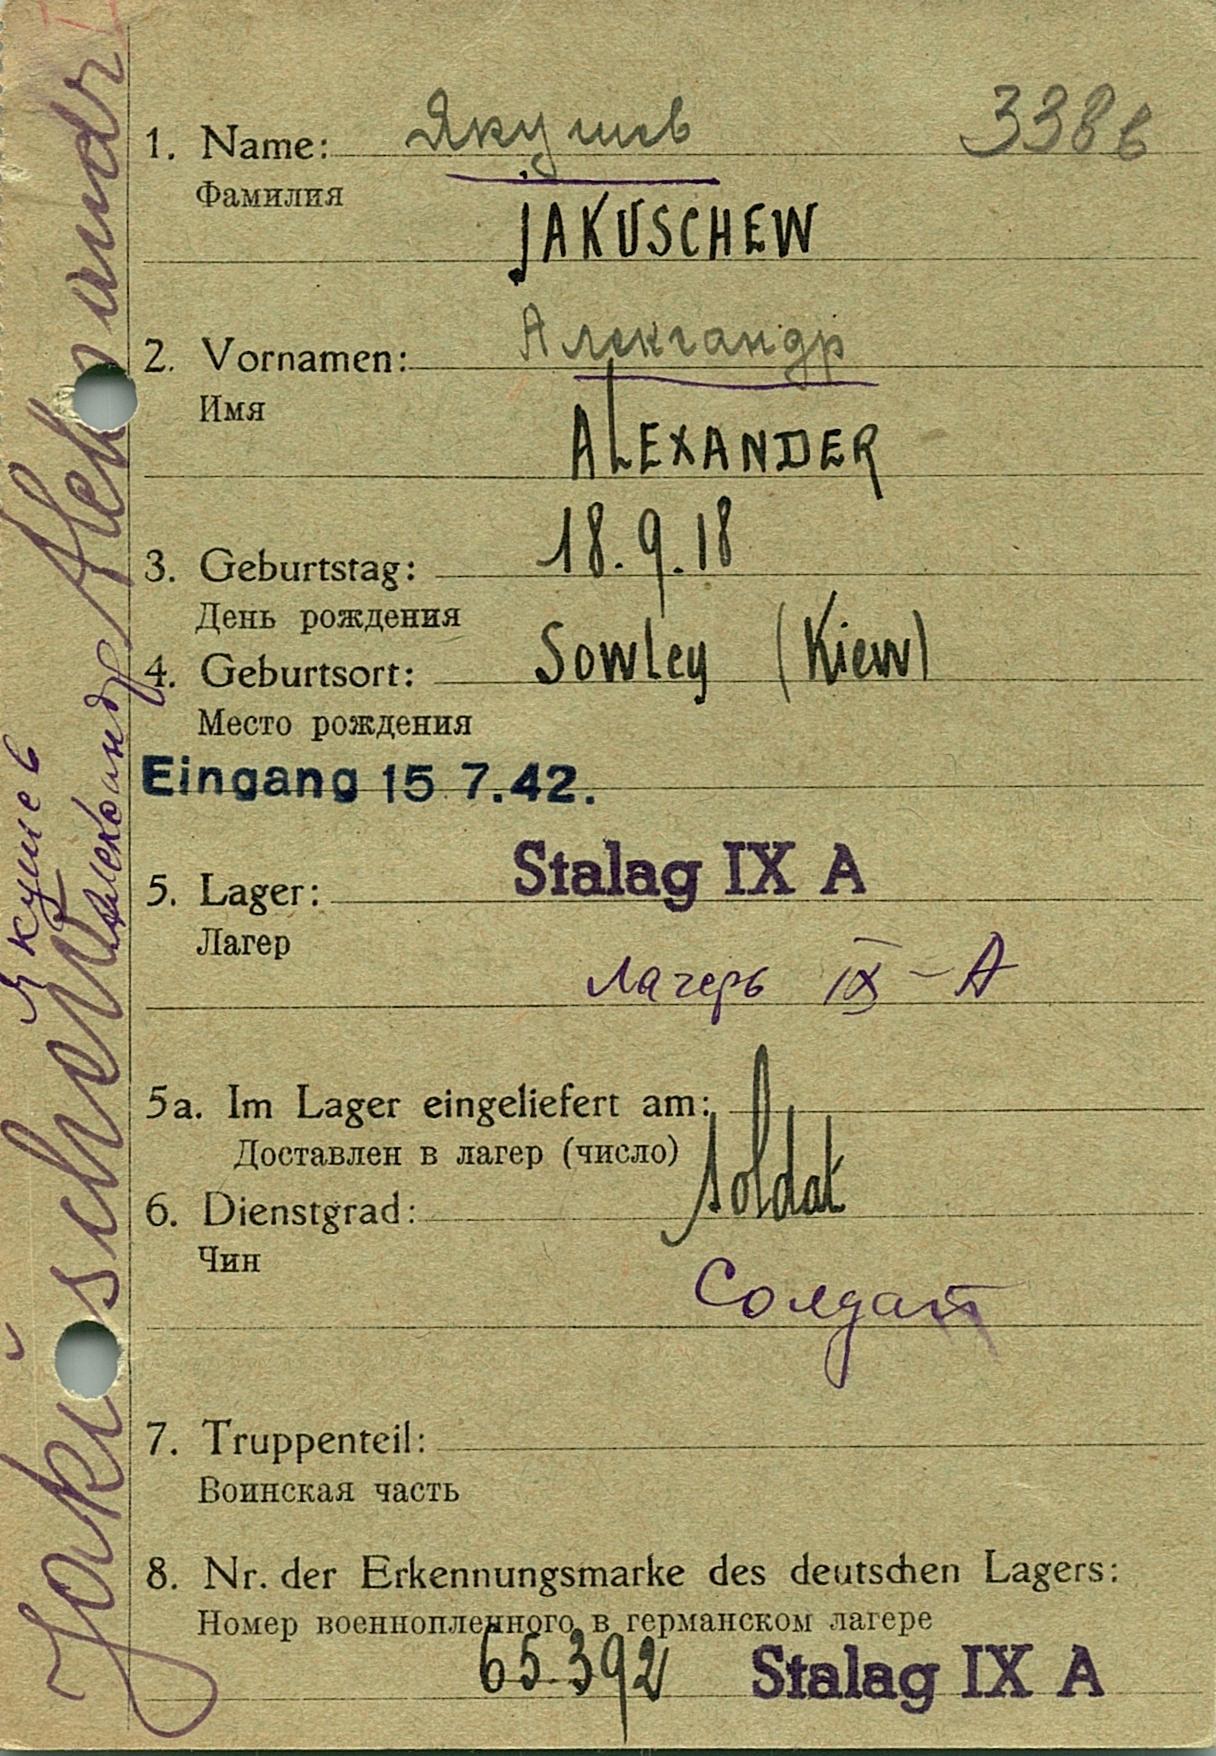 1. Name: Якушев 338 в
Фамилия
JAKUSCHEW
2. Vornamen: Александр
Имя
ALEXANDER
3. Geburtstag: 18.9.18
День рождения
4. Geburtsort: Sowley (Kiew)
Место рождения
Eingang 15 7.42.
5. Lager: Stalag IX A
Лагер
Лагерь IX-А
5a. Im Lager eingeliefert am:
Доставлен в лагер (число)
6. Dienstgrad: Soldat
Чин
Солдат
7. Truppenteil:
Воинская часть
8. Nr. der Erkennungsmarke des deutschen Lagers:
Номер военнопленного в германском лагере
65.392 Stalag IX A
Jakuschew Aleksandr
Якушев
Александр